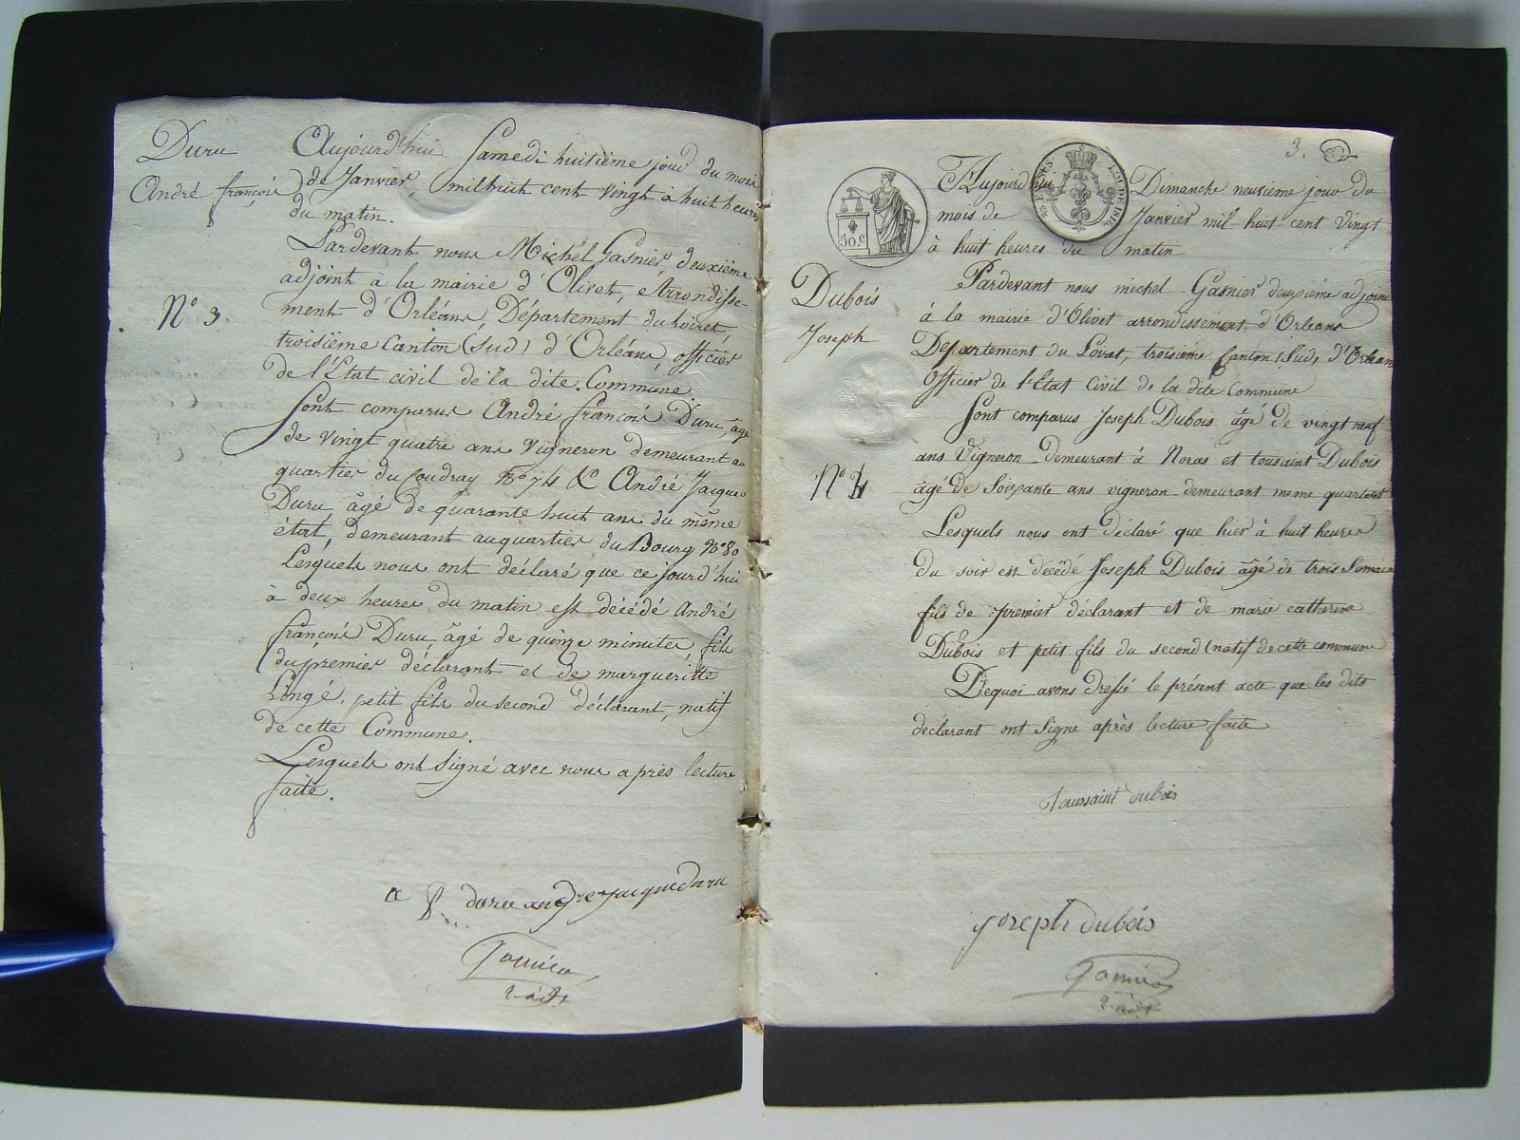 Duru
André françois
N.° 3.
Aujourd'hui Samedi huitième jour du mois
de Janvier, mil huit cent vingt à huit heures
du matin.
Pardevant nous Michel Gasnier deuxième
adjoint à la mairie d'Olivet, Arrondisse-
ment d'Orléans, Département du Loiret,
troisième Canton (Sud) d'Orléans, officier
de l'État civil de la dite Commune.
Sont comparus André françois Duru, âgé
de vingt quatre ans Vigneron demeurant au
quartier du Coudray N.° 74 & André Jacques
Duru, âgé de quarante huit ans du même
état, demeurant au quartier du Bourg N.° 80
Lesquels nous ont déclaré que ce jourd'hui
à deux heures du matin est décédé André
françois Duru âgé de quinze minutes, fils
du premier déclarant et de margueritte
Longé, petit fils du second déclarant, natif
de cette Commune.
Lesquels ont signé avec nous après lecture
faite.
duru andre jacque duru
Gasnier
3.
50 c
Aujourd'hui Dimanche neuvieme jour du
mois de Janvier mil huit cent vingt
à huit heures du matin
Dubois
Joseph
N° 4
Pardevant nous michel Gasnier deuxième adjoint
à la mairie d'Olivet arrondissement d'Orleans
Departement du Loiret, troisieme Canton (Sud) d'Orleans
Officier de l'Etat Civil de la dite Commune
Sont comparus Joseph Dubois âgé de vingt neuf
ans Vigneron demeurant à Noras et toussaint Dubois
âgé de Soixante ans vigneron demeurant meme quartier
Lesquels nous ont déclaré que hier à huit heures
du soir est décédé Joseph Dubois âgé de trois Semaines
fils de premier déclarant et de marie catherine
Dubois et petit fils du second (natif de cette commune
Dequoi avons dressé le présent acte que les dits
declarant ont Signe après lecture faite
Toussaint dubois
joseph dubois
Gasnier